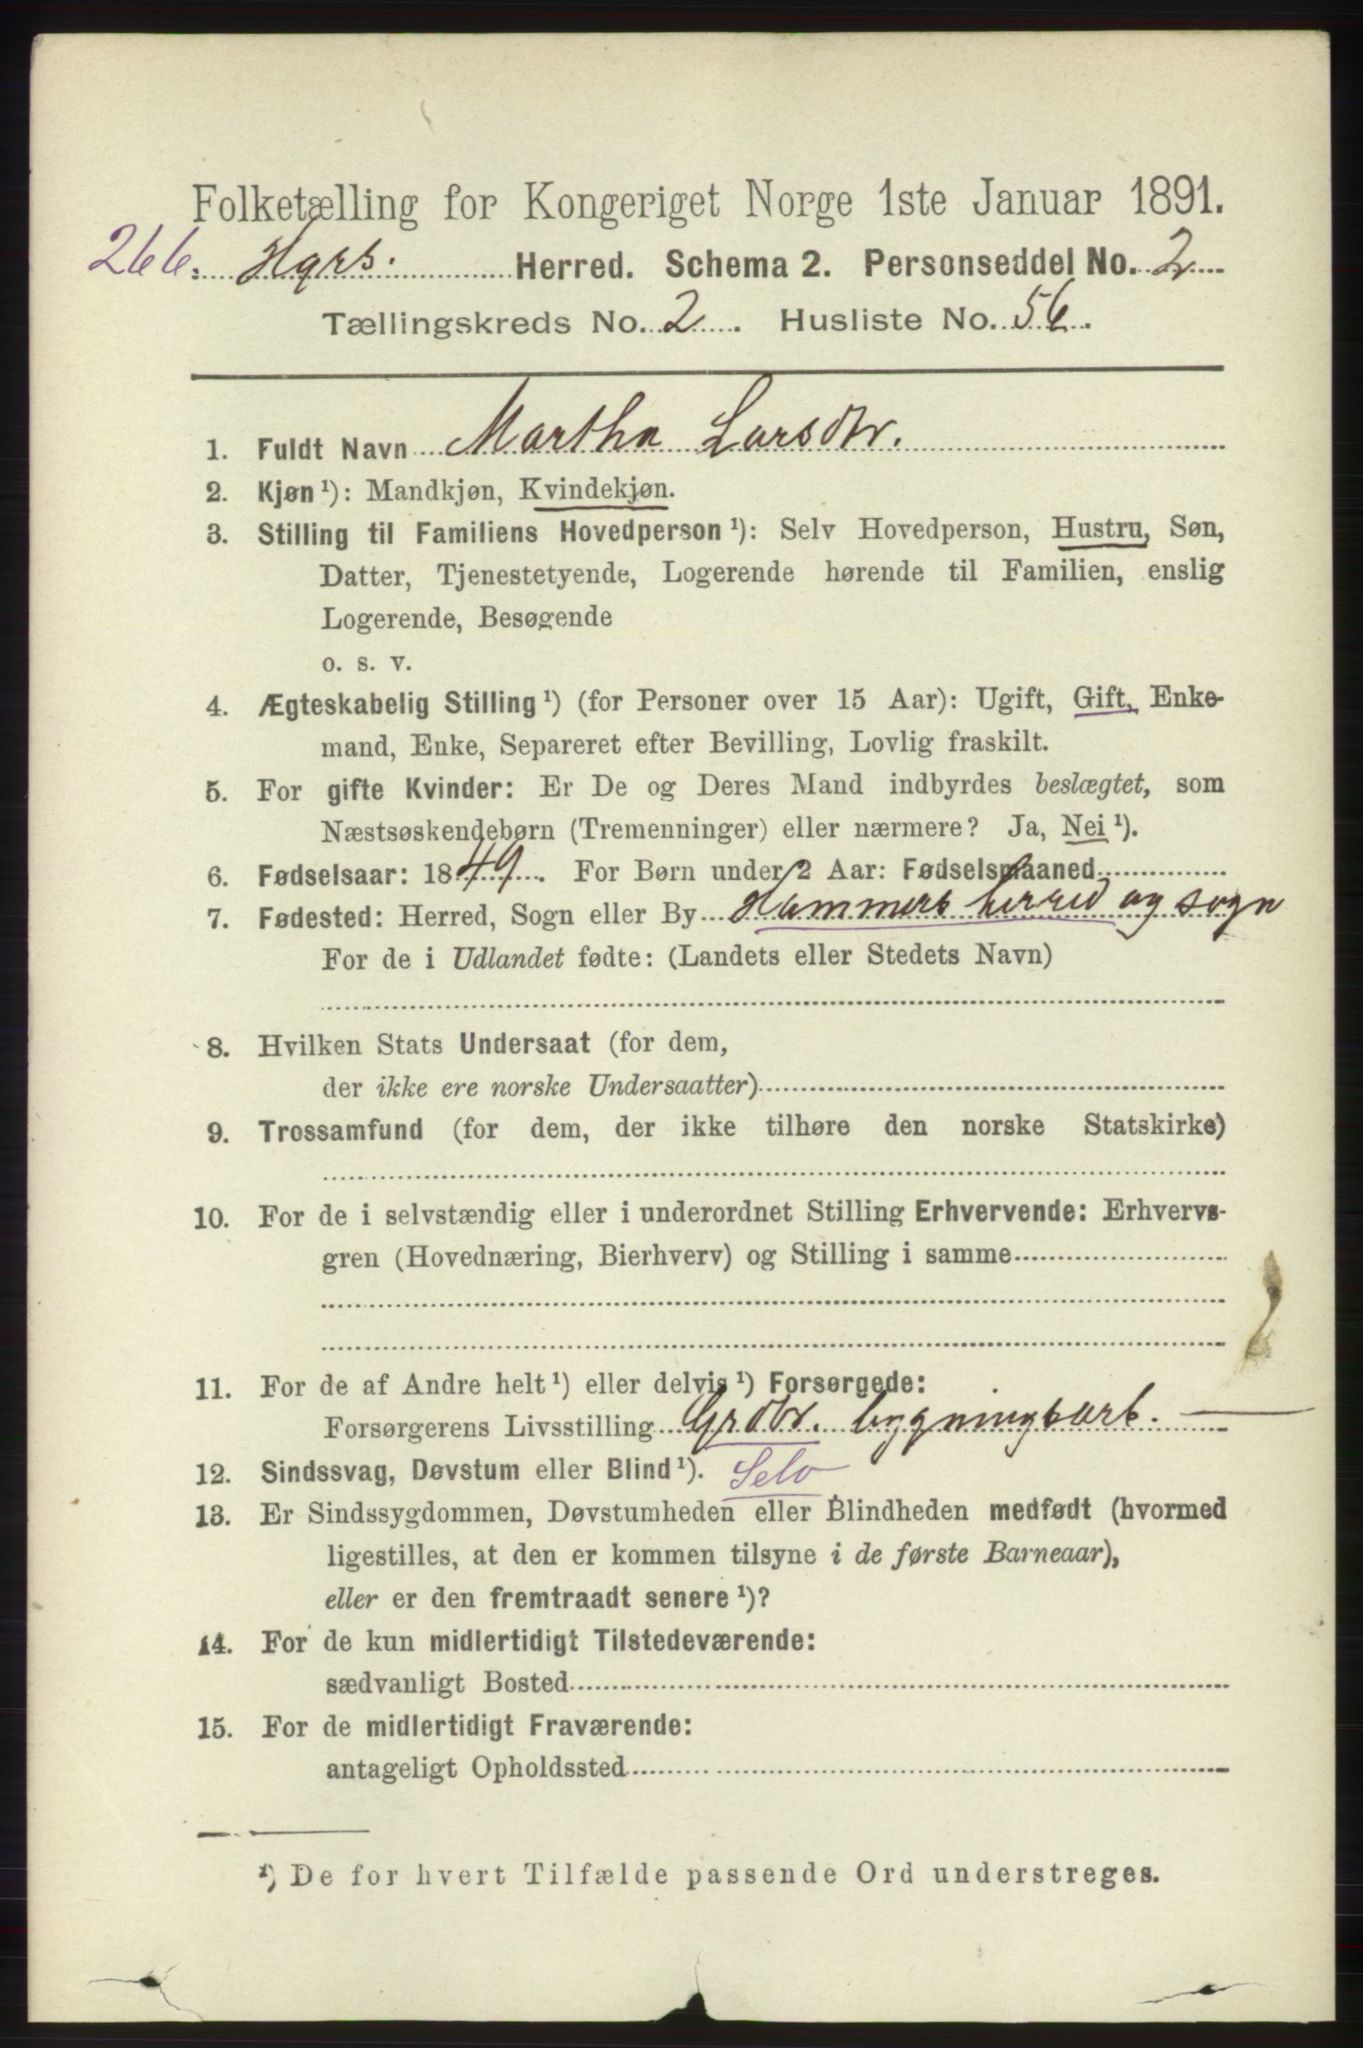 Folketælling for Kongeriget Norge 1ste Januar 1891.
266. Hqrs. Herred. Schema 2. Personseddel No. 2
Tællingskreds No. 2. Husliste No. 56.
1. Fuldt Navn Martha Larsdtr.
2. Kjøn¹): Mandkjøn, Kvindekjøn.
3. Stilling til Familiens Hovedperson¹): Selv Hovedperson, Hustru, Søn,
Datter, Tjenestetyende, Logerende hørende til Familien, enslig
Logerende, Besøgende
o. s. v.
4. Ægteskabelig Stilling¹) (for Personer over 15 Aar): Ugift, Gift, Enke-
mand, Enke, Separeret efter Bevilling, Lovlig fraskilt.
5. For gifte Kvinder: Er De og Deres Mand indbyrdes beslægtet, som
Næstsøskendebørn (Tremenninger) eller nærmere? Ja, Nei¹).
6. Fødselsaar: 1849. For Børn under 2 Aar: Fødselsmaaned
7. Fødested: Herred, Sogn eller By Hammers herred og sogn
For de i Udlandet fødte: (Landets eller Stedets Navn)
8. Hvilken Stats Undersaat (for dem,
der ikke ere norske Undersaatter)
9. Trossamfund (for dem, der ikke tilhøre den norske Statskirke)
10. For de i selvstændig eller i underordnet Stilling Erhvervende: Erhvervs-
gren (Hovednæring, Bierhverv) og Stilling i samme
11. For de af Andre helt¹) eller delvis¹) Forsørgede:
Forsørgerens Livsstilling Grdbr. bygningsarb.
12. Sindssvag, Døvstum eller Blind¹). Selv
13. Er Sindssygdommen, Døvstumheden eller Blindheden medfødt (hvormed
ligestilles, at den er kommen tilsyne i de første Barneaar),
eller er den fremtraadt senere¹)?
14. For de kun midlertidigt Tilstedeværende:
sædvanligt Bosted
15. For de midlertidigt Fraværende:
antageligt Opholdssted
¹) De for hvert Tilfælde passende Ord understreges.